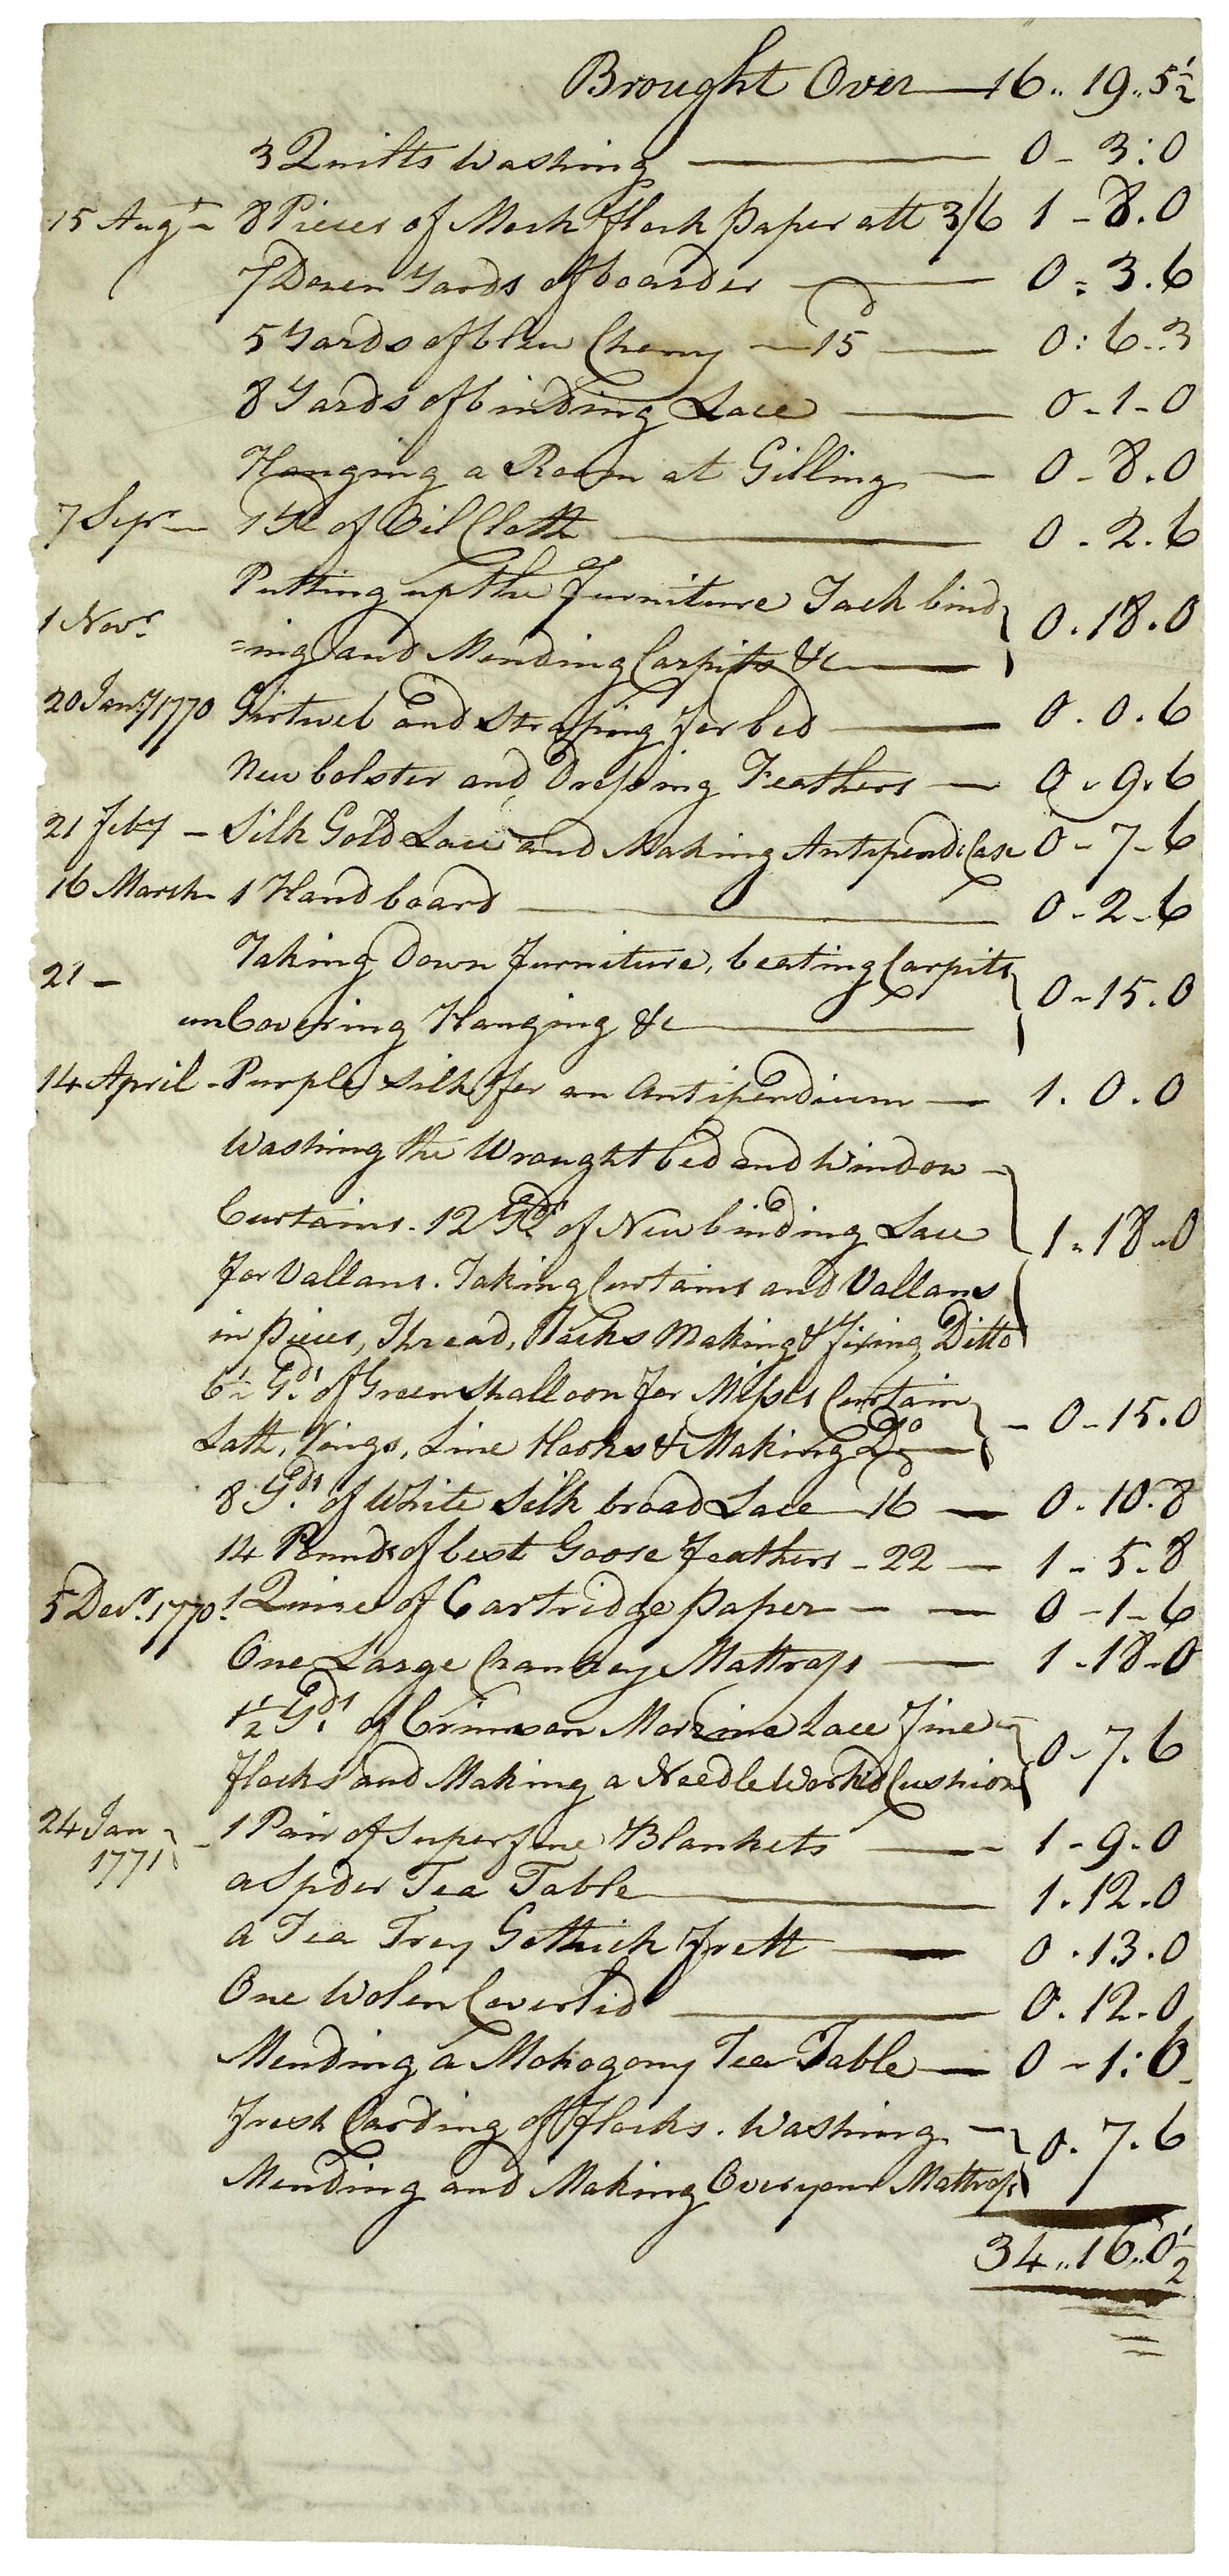 Brought Over — 16 .. 19 .. 5½
3 Quilts Washing — 0 - 3 : 0
15 Augt - 8 Pieces of Mock flock paper att 3/6 1 - 8 . 0
7 Dozen Yards of boarder — 0 = 3 . 6
5 Yards of blew Cheney — 15d — 0 : 6 .. 3
8 Yards of binding Lace — 0 - 1 - 0
Hanging a Room at Gilling — 0 - 8 . 0
7 Sepr — 1 Yd of Oil Cloth — 0 . 2 . 6
Putting up the furniture Tack bind
1 Novr =ing and Mending Carpits &c — 0 . 18 . 0
20 Jany 1770 Girtweb and Straping for bed — 0 . 0 . 6
New bolster and Dressing Feathers — 0 . 9 . 6
21 Feby — Silk Gold Lace and Making Antipendi Case 0 - 7 - 6
16 March - 1 Hand board — 0 - 2 - 6
Taking Down furniture, beating Carpits
21 — unCovering Hanging &c — 0 - 15 . 0
14 April - Purple Silk for an Antipendium — 1 . 0 . 0
Washing the Wrought bed and Window -
Curtains - 12 Yds of New binding Lace
for Vallans . Taking Curtains and Vallans 1 - 18 - 0
in pieces, Thread, Tacks Making & fixing Ditto
6½ Yds of Green Shalloon for Misses Curtain
Lath, Rings, Line Hooks & Making Do — 0 - 15 . 0
8 Yds of White Silk broad Lace 16 — 0 . 10 . 8
14 Pounds of best Goose feathers - 22 — 1 - 5 . 8
5 Decr. 1770. 1 Quire of Cartridge paper — — 0 - 1 - 6
One Large Chankey Mattrass — 1 - 18 - 0
1½ Yds of Crimson Morzine Lace fine -
flocks and Making a Needle Work'd Cushion 0 - 7 . 6
24 Jan - 1 Pair of superfine Blankets — 1 - 9 . 0
1771
a Spder Tea Table — 1 . 12 . 0
a Tea Trey Gothick frett — 0 . 13 . 0
One Wolen Coverlid — 0 . 12 . 0
Mending a Mohogony Tea Table — 0 - 1 : 6
fresh Carding of flocks . Washing —
Mending and Making Over your Mattrass 0 . 7 . 6
34 .. 16 .. 0½